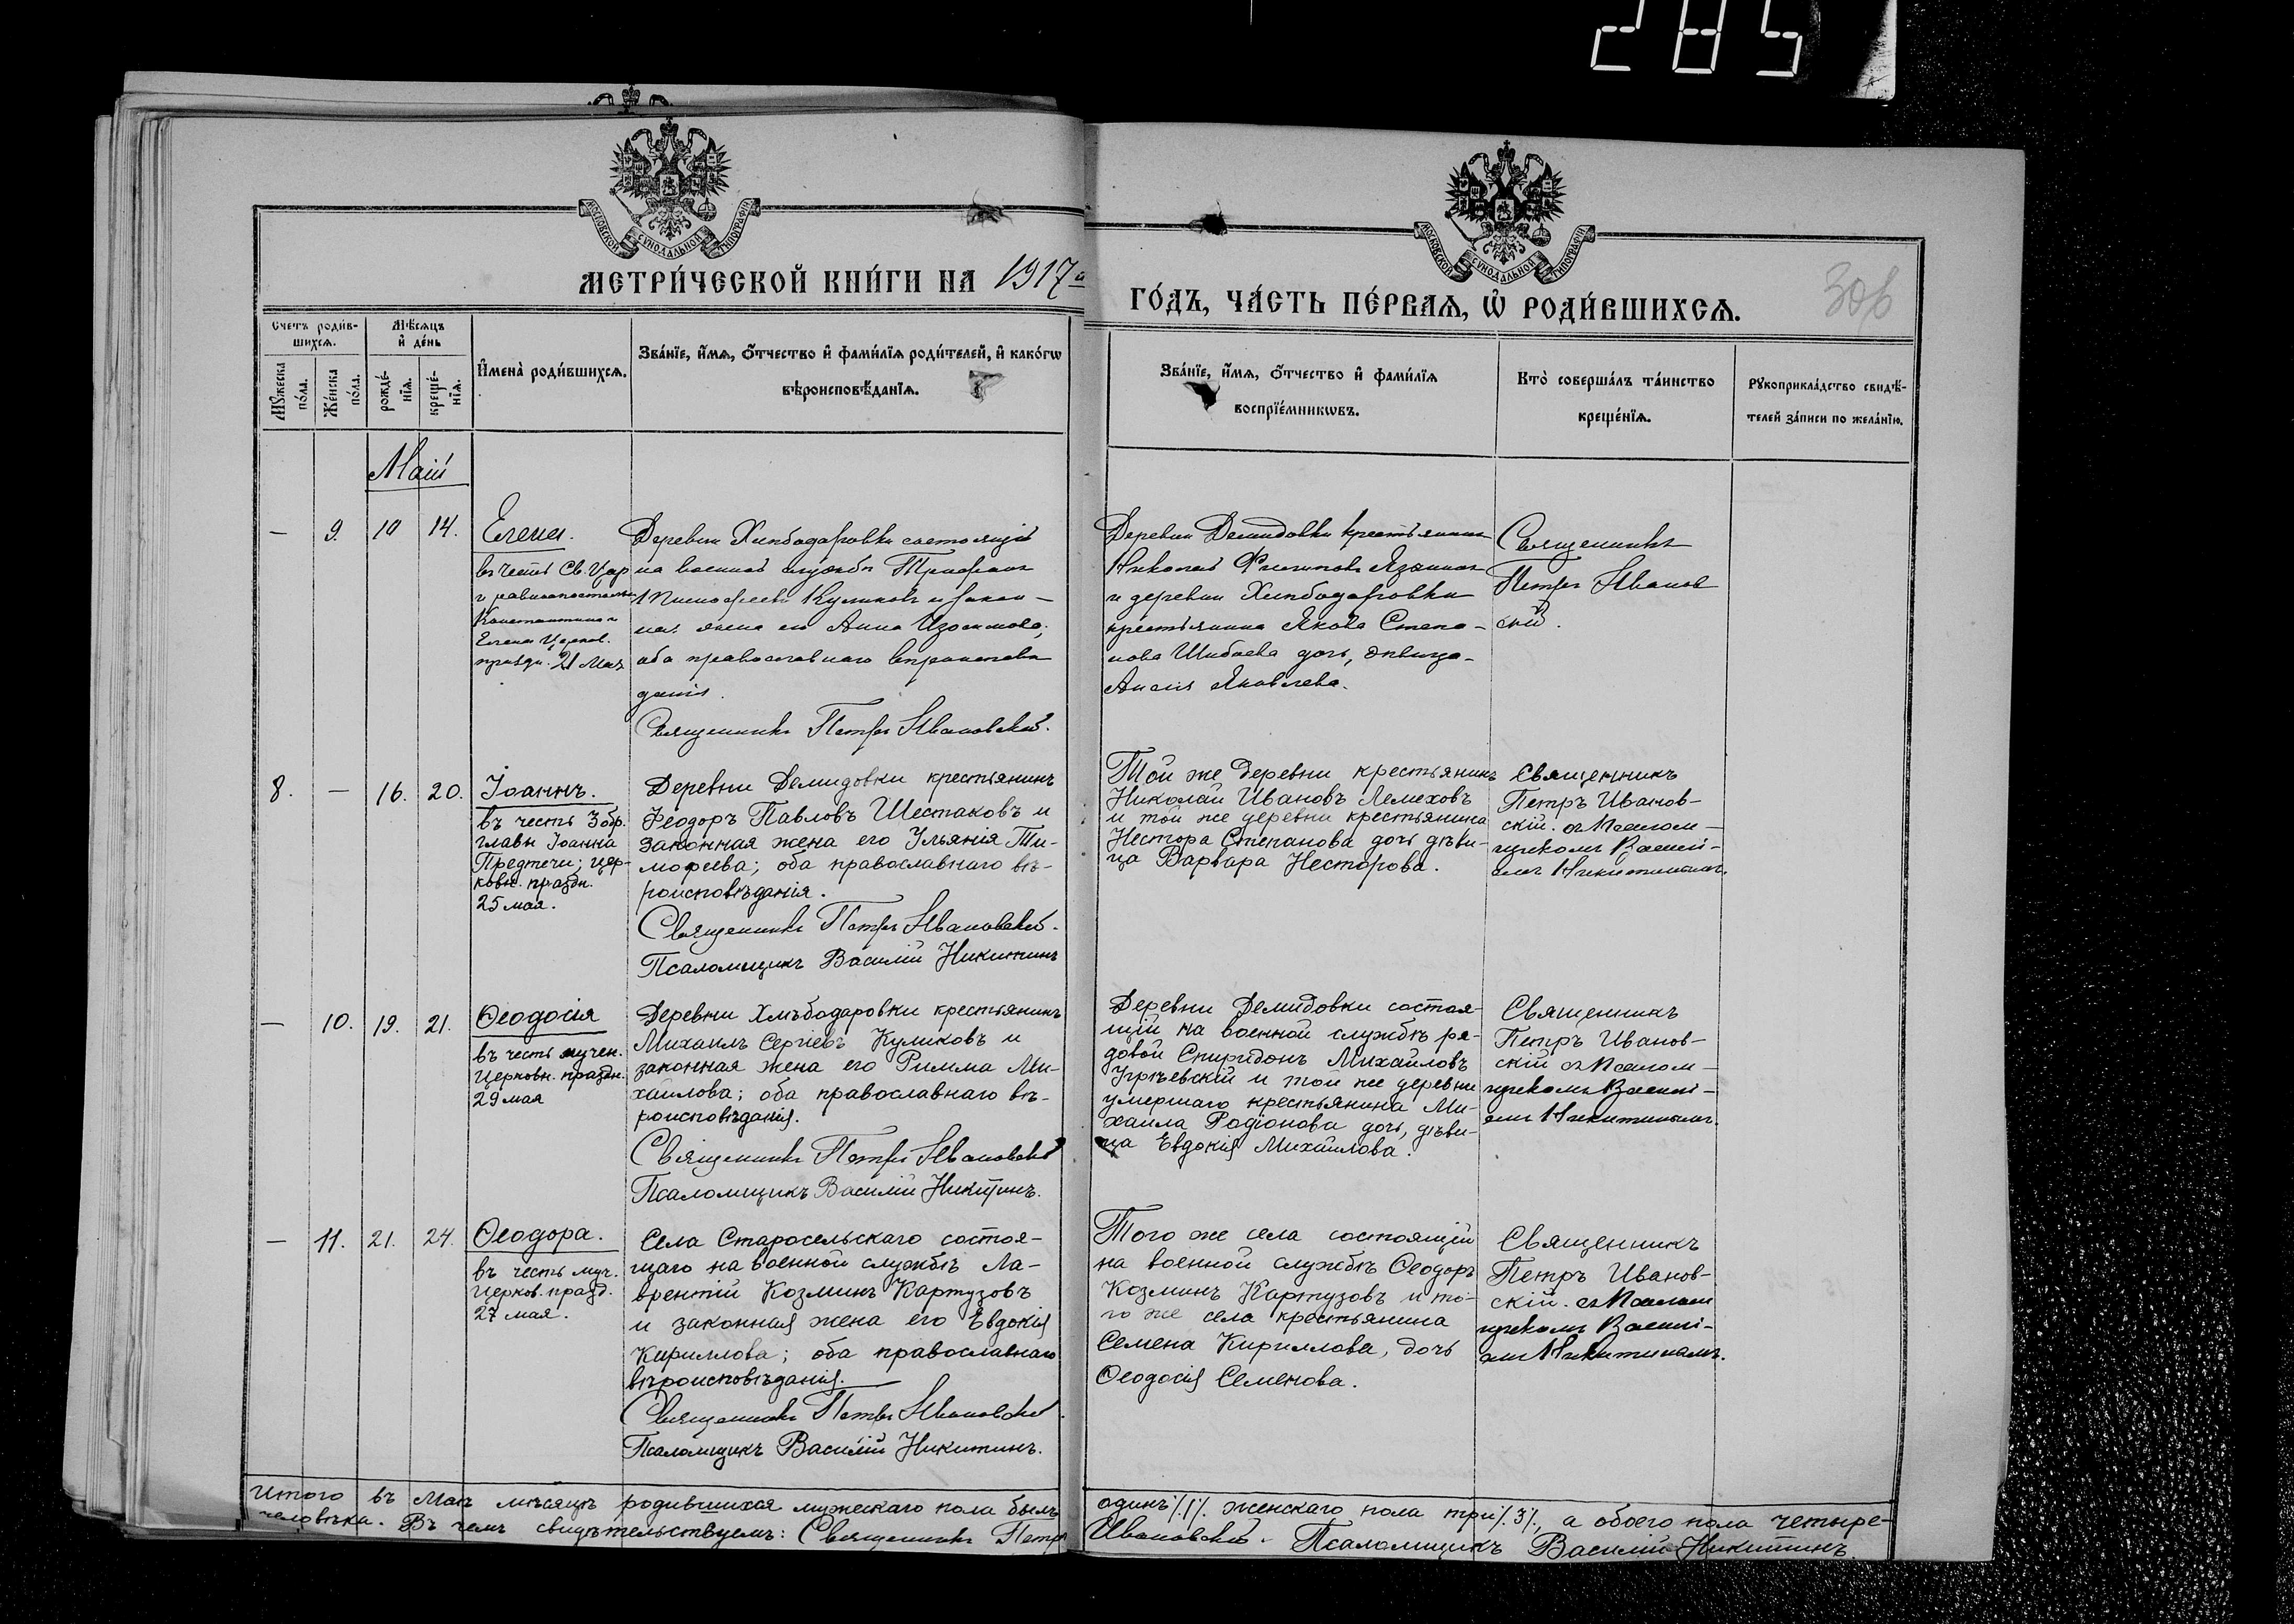 285
МОСКОВСКОЙ СУНОДАЛЬНОЙ ТИПОГРАФІИ
МОСКОВСКОЙ СУНОДАЛЬНОЙ ТИПОГРАФІИ
МЕТРИ́ЧЕСКОЙ КНИ́ГИ НА 1917й
ГО́ДЪ, ЧА́СТЬ ПЕ́РВАѦ, Ѡ҆ РОДИ́ВШИХСѦ.
Счетъ роди́в-
шихсѧ.
Мѣ́сѧцъ
и҆ де́нь
Мꙋжеска
по́ла.
Же́нска
по́ла.
рожде́-
нїѧ.
креще́-
нїѧ.
И҆мена̀ роди́вшихсѧ.
Зва́нїе, и҆́мѧ, ѻ҆́тчество и҆ фами́лїѧ роди́телей, и҆ како́гѡ
вѣроисповѣ́данїѧ.
Зва́нїе, и҆́мѧ, ѻ҆́тчество и҆ фами́лїѧ
воспрїе́мникѡвъ.
Кто̀ соверша́лъ та́инство
креще́нїѧ.
Рꙋкоприкла́дство свидѣ́-
телей за́писи по жела́нїю.
Май
— 9. 10 14. Елена.
въ честь Св. Цар
и равноапостольн
Константина и
Елены Церков.
праздн. 21 Мая
Деревни Хлѣбодаровки состоящій
на военной службѣ Трифонъ
Куликовъ и закон-
ная жена его Анна Изосимова;
оба православнаго вѣроисповѣ
данія.
Священникъ Петръ Ивановскій.
Деревни Демидовки крестьянинъ
Николай Филиповъ
и деревни Хлѣбодаровки
крестьянина Якова Степа-
нова Шибаева дочь, дѣвица-
Яковлева.
Священникъ
Петръ Иванов
скій.
8. — 16. 20. Іоаннъ.
въ честь 3 обр.
главы Іоанна
Предтечи; цер-
ковн. праздн.
25 мая.
Деревни Демидовки крестьянинъ
Ѳеодоръ Павловъ Шестаковъ и
законная жена его Ульянія Ти-
мофеева; оба православнаго вѣ-
роисповѣданія.
Священникъ Петръ Ивановскій.
Псаломщикъ Василій Никитинъ
Той же деревни крестьянинъ
Николай Ивановъ Лемеховъ
и той же деревни крестьянина
Нестора Степанова дочь дѣви-
ца Варвара Несторова.
Священникъ
Петръ Иванов-
скій. съ Псалом-
щикомъ Василі-
емъ Никитинымъ.
— 10. 19. 21. Ѳеодосія
въ честь мучен.
Церковн. праздн.
29 мая
Деревни Хлѣбодаровки крестьянинъ
Михаилъ Сергіевъ Куликовъ и
законная жена его Римма Ми-
хайлова; оба православнаго вѣ-
роисповѣданія.
Священникъ Петръ Ивановскій
Псаломщикъ Василій Никитинъ.
Деревни Демидовки состоя-
щій на военной службѣ ря-
довой Спиридонъ Михайловъ
Угрѣевскій и той же деревни
умершаго крестьянина Ми-
хаила Родіонова дочь, дѣви-
ца Евдокія Михайлова.
Священникъ
Петръ Иванов-
скій съ Псалом-
щикомъ Василі-
емъ Никитинымъ.
— 11. 21. 24. Ѳеодора.
въ честь муч.
Церков. празд.
27 мая.
Села Старосельскаго состоя-
щаго на военной службѣ Ла-
врентій Козминъ Картузовъ
и законная жена его Евдокія
Кириллова; оба православнаго
вѣроисповѣданія.
Священникъ Петръ Ивановскій.
Псаломщикъ Василій Никитинъ.
Того же села состоящій
на военной службѣ Ѳеодоръ
Козминъ Картузовъ и то-
го же села крестьянина
Семена Кириллова, дочь
Ѳеодосія Семенова.
Священникъ
Петръ Иванов-
скій. съ Псалом
щикомъ Василі-
емъ Никитинымъ.
Итого въ Маѣ мѣсяцѣ родившихся мужескаго пола былъ одинъ /1/. женскаго пола три /3/, а обоего пола четыре-
человѣка. Въ чемъ свидѣтельствуемъ: Священникъ Петръ Ивановскій. Псаломщикъ Василій Никитинъ.